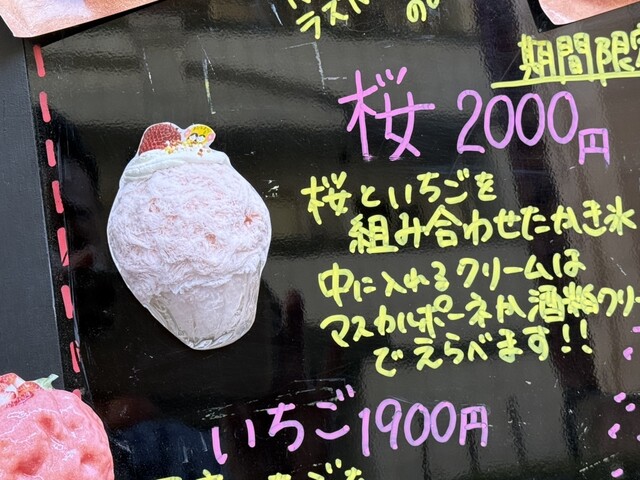 期間限定
桜 2000円
桜といちごを
組み合わせたかき氷
中に入れるクリームは
マスカルポーネか酒粕クリー
でえらべます!!
いちご1900円